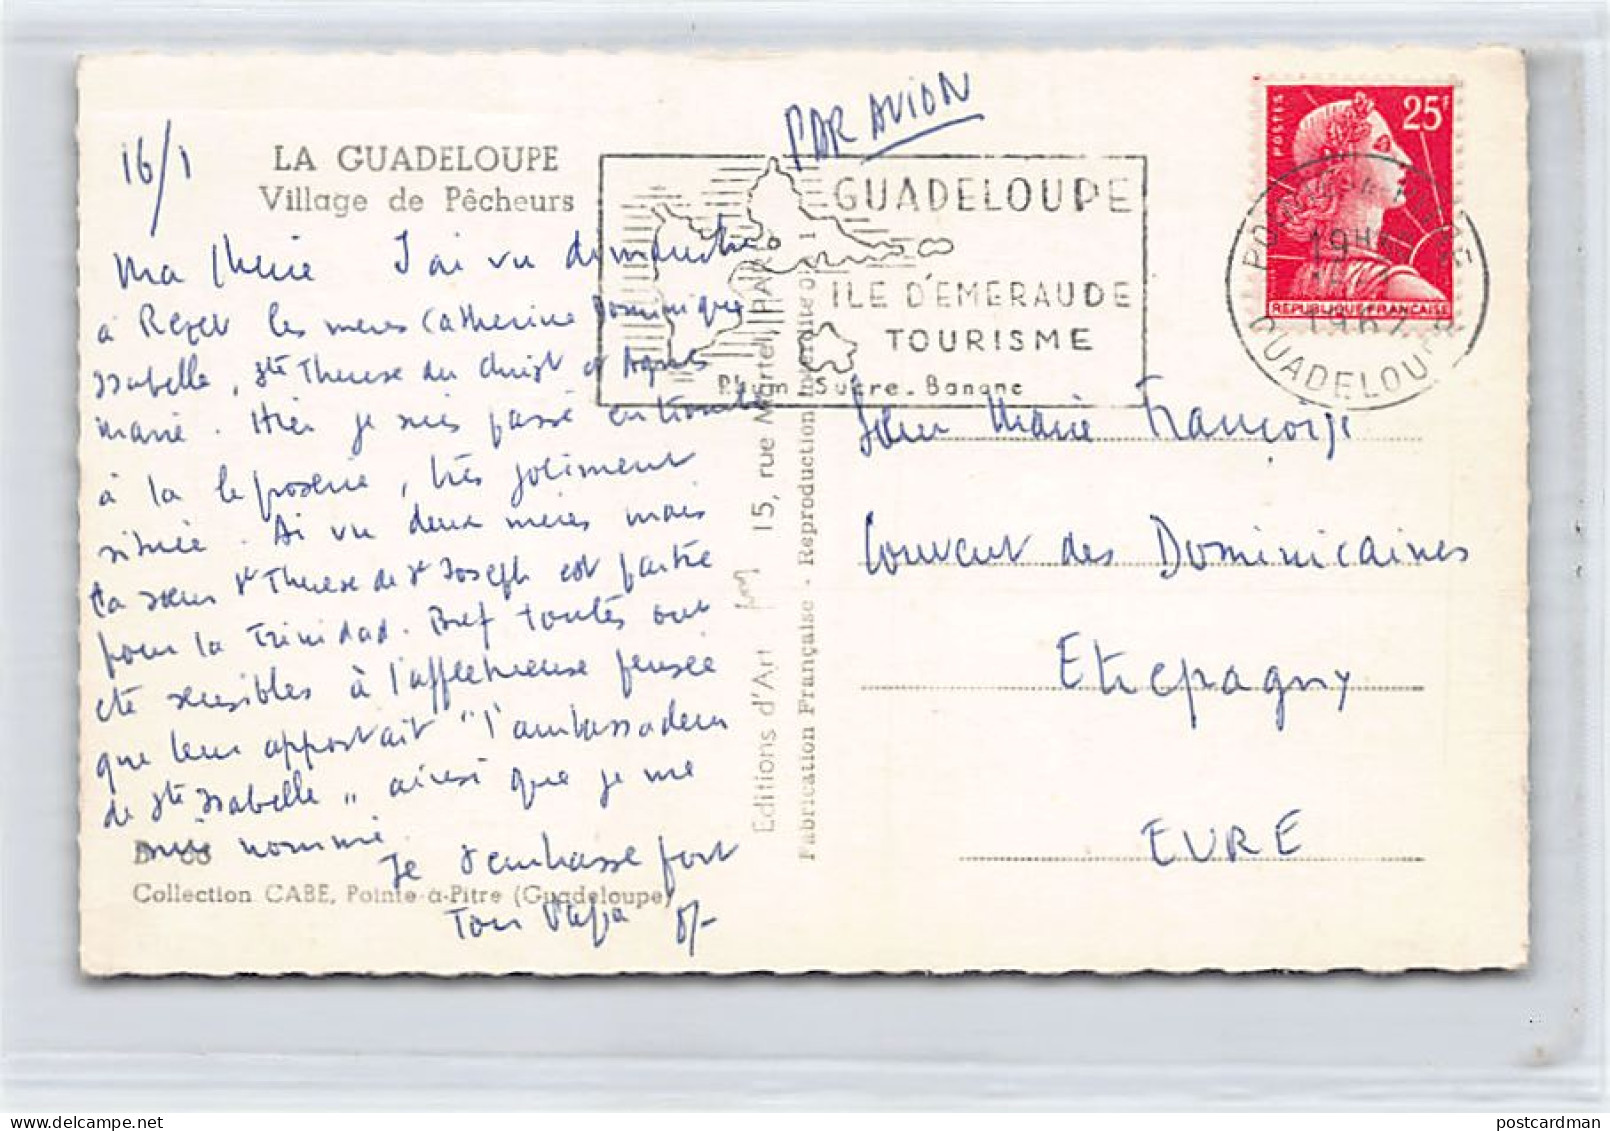 16/1
LA GUADELOUPE
Village de Pêcheurs
PAR AVION
Ma chérie J'ai vu dimanche
à Rezet les meres Catherine Dominique
Isabelle, Ste Therese du Christ et Agnès
marie. Hier je suis passé en trombe
à la leproserie, très joliment
située. Ai vu deux meres mais
la sœur Ste Therese de St Joseph est partie
pour la Trinidad. Bref toutes ont
été sensibles à l'affectueuse pensée
que leur apportait "l'ambassadeur
de Ste Isabelle" ainsi que je me
suis nommé.
Je t'embrasse fort
Ton Papa
Collection CABE, Pointe-à-Pitre (Guadeloupe)
Editions d'Art 15, rue Martel, PARIS
Fabrication Française - Reproduction Interdite
GUADELOUPE
ILE D'EMERAUDE
TOURISME
Rhum - Sucre - Banane
POSTES
25F
REPUBLIQUE FRANÇAISE
POINTE-A-PITRE
19H
GUADELOUPE
Sœur Marie Françoise
Couvent des Dominicaines
Etrepagny
EURE
postcardman